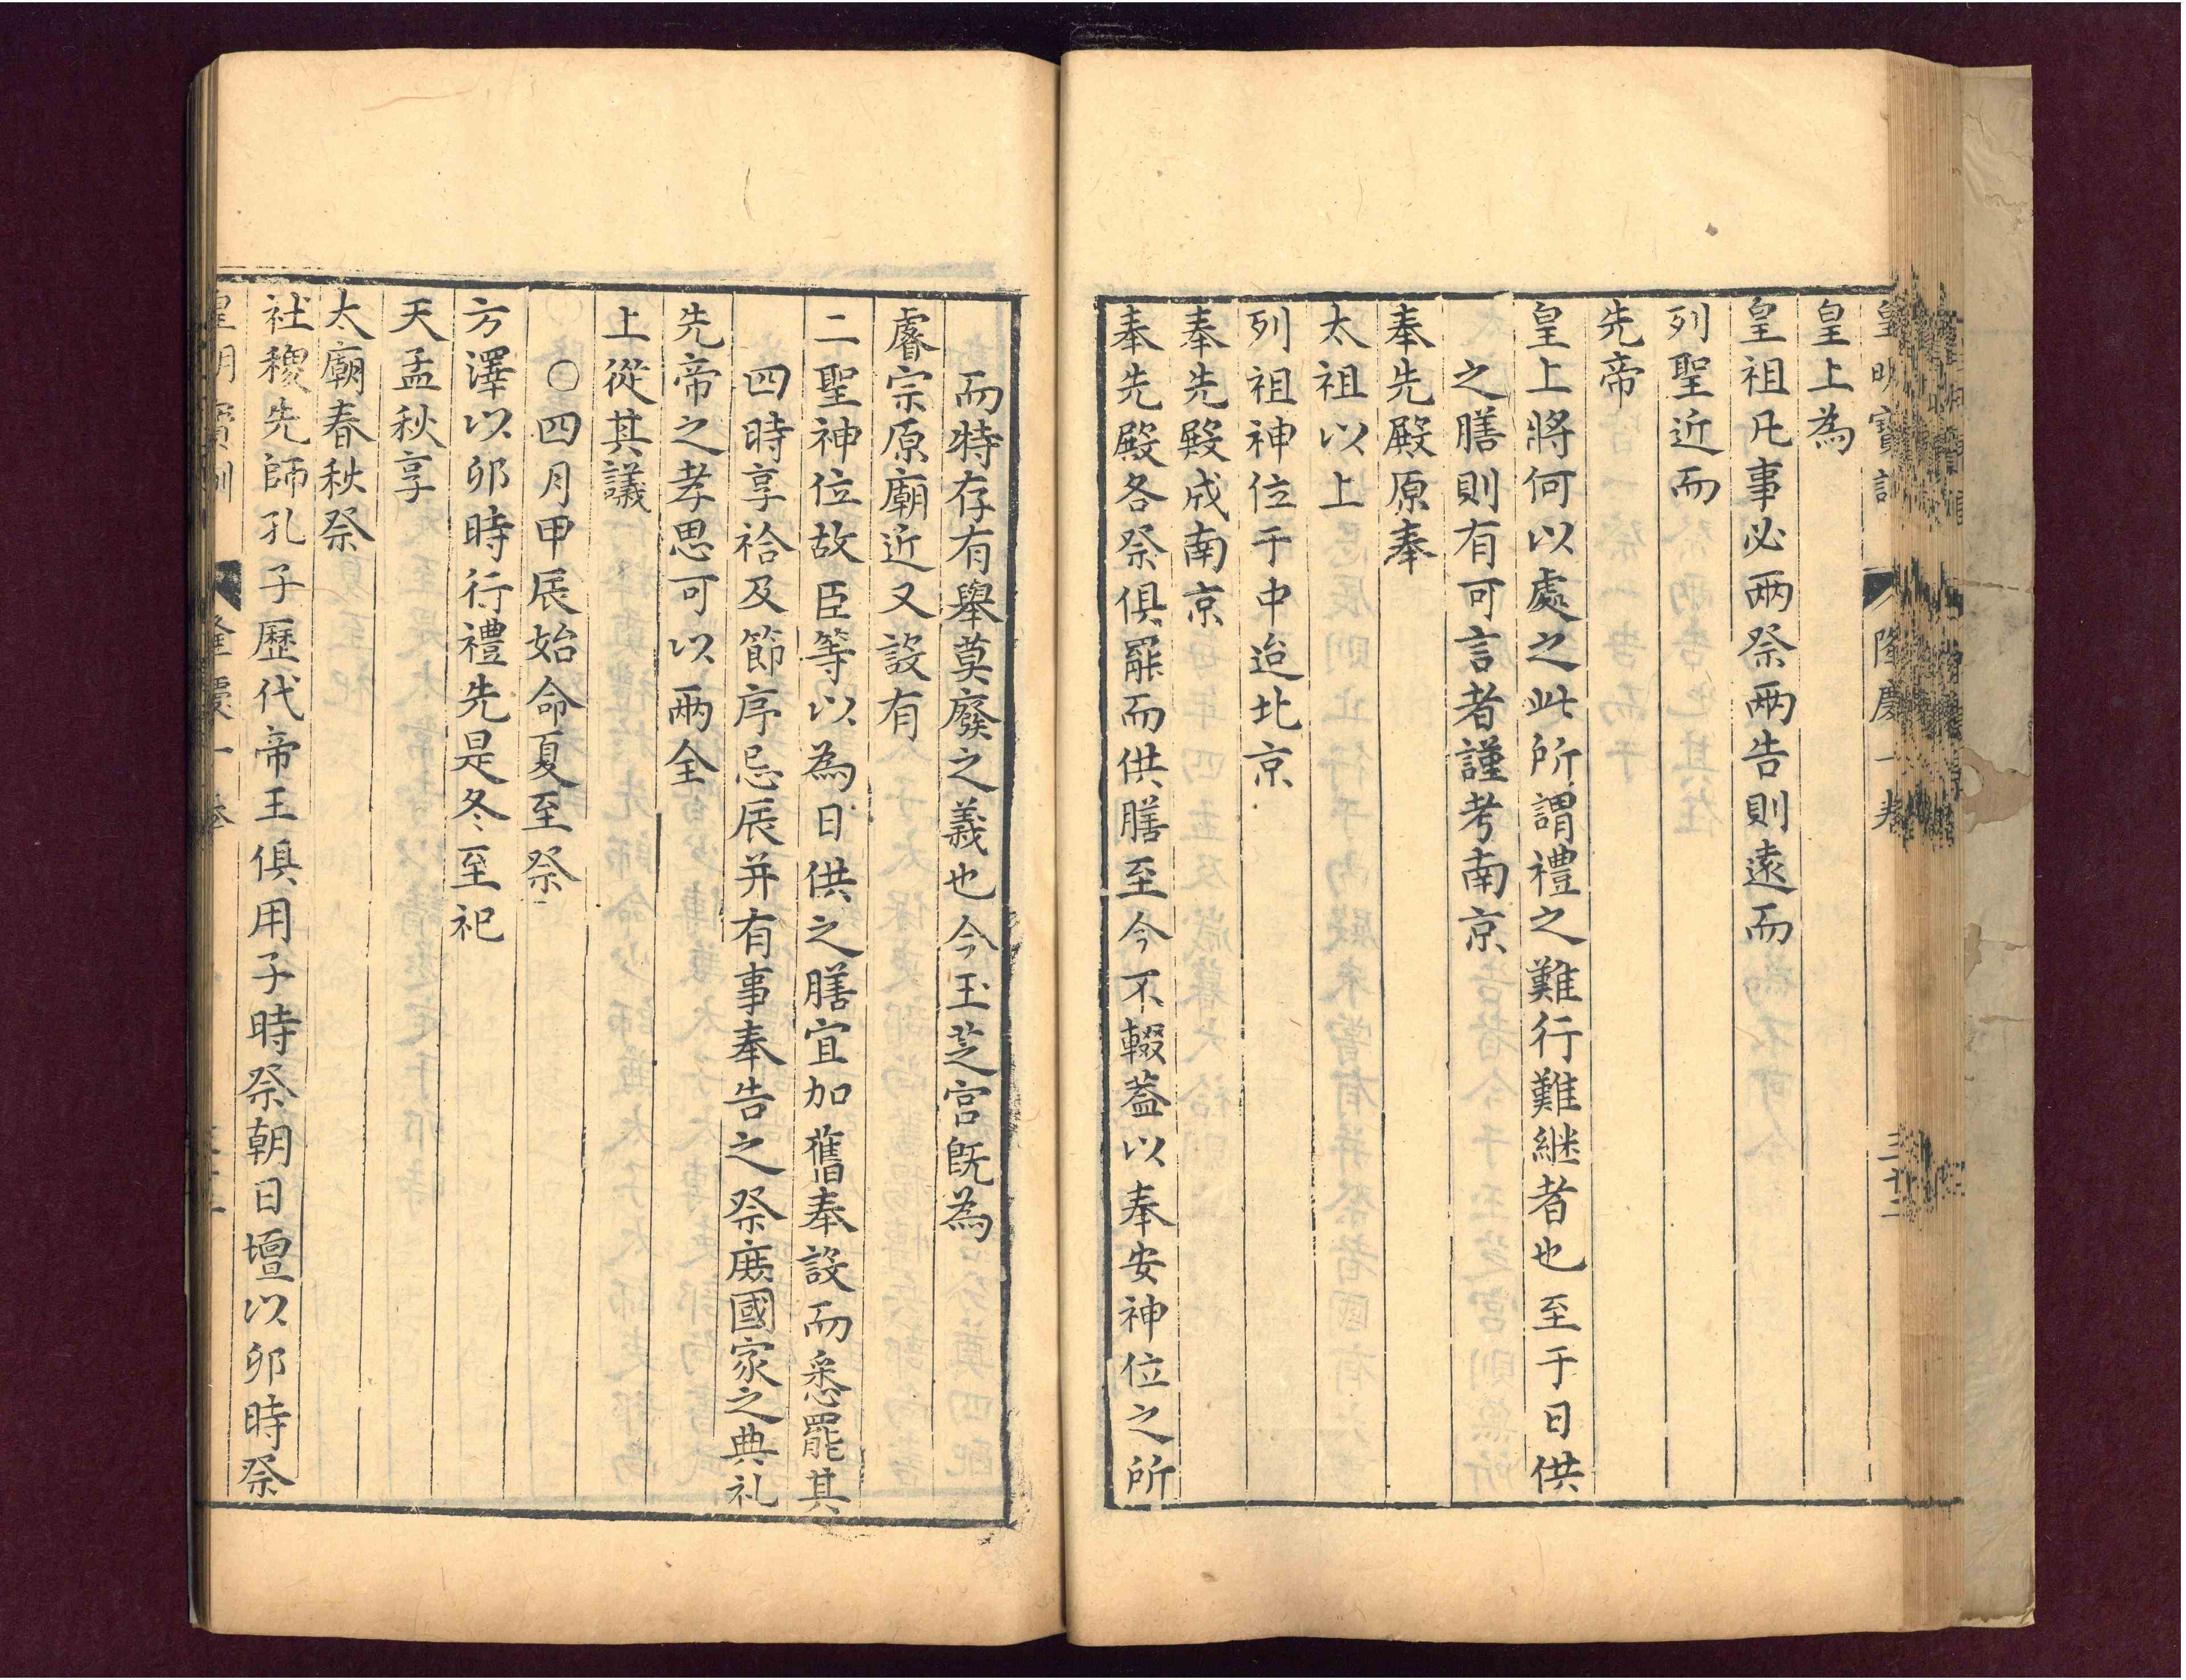 皇明寶訓 隆慶一卷 三十二
皇上為
皇祖凡事必兩祭兩告則遠而
列聖近而
先帝
皇上將何以處之此所謂禮之難行難継者也至于日供
之膳則有可言者謹考南京
奉先殿原奉
太祖以上
列祖神位于中迨北京
奉先殿成南京
奉先殿各祭俱罷而供膳至今不輟葢以奉安神位之所
而特存有舉莫廢之義也今玉芝宮旣為
睿宗原廟近又設有
二聖神位故臣等以為日供之膳宜加舊奉設而悉罷其
四時享祫及節序忌辰并有事奉告之祭庶國家之典礼
先帝之孝思可以兩全
上從其議
○四月甲辰始命夏至祭
方澤以卯時行禮先是冬至祀
天孟秋享
太廟春秋祭
社稷先師孔子歷代帝王俱用子時祭朝日壇以卯時祭
皇明寶訓 隆慶一卷